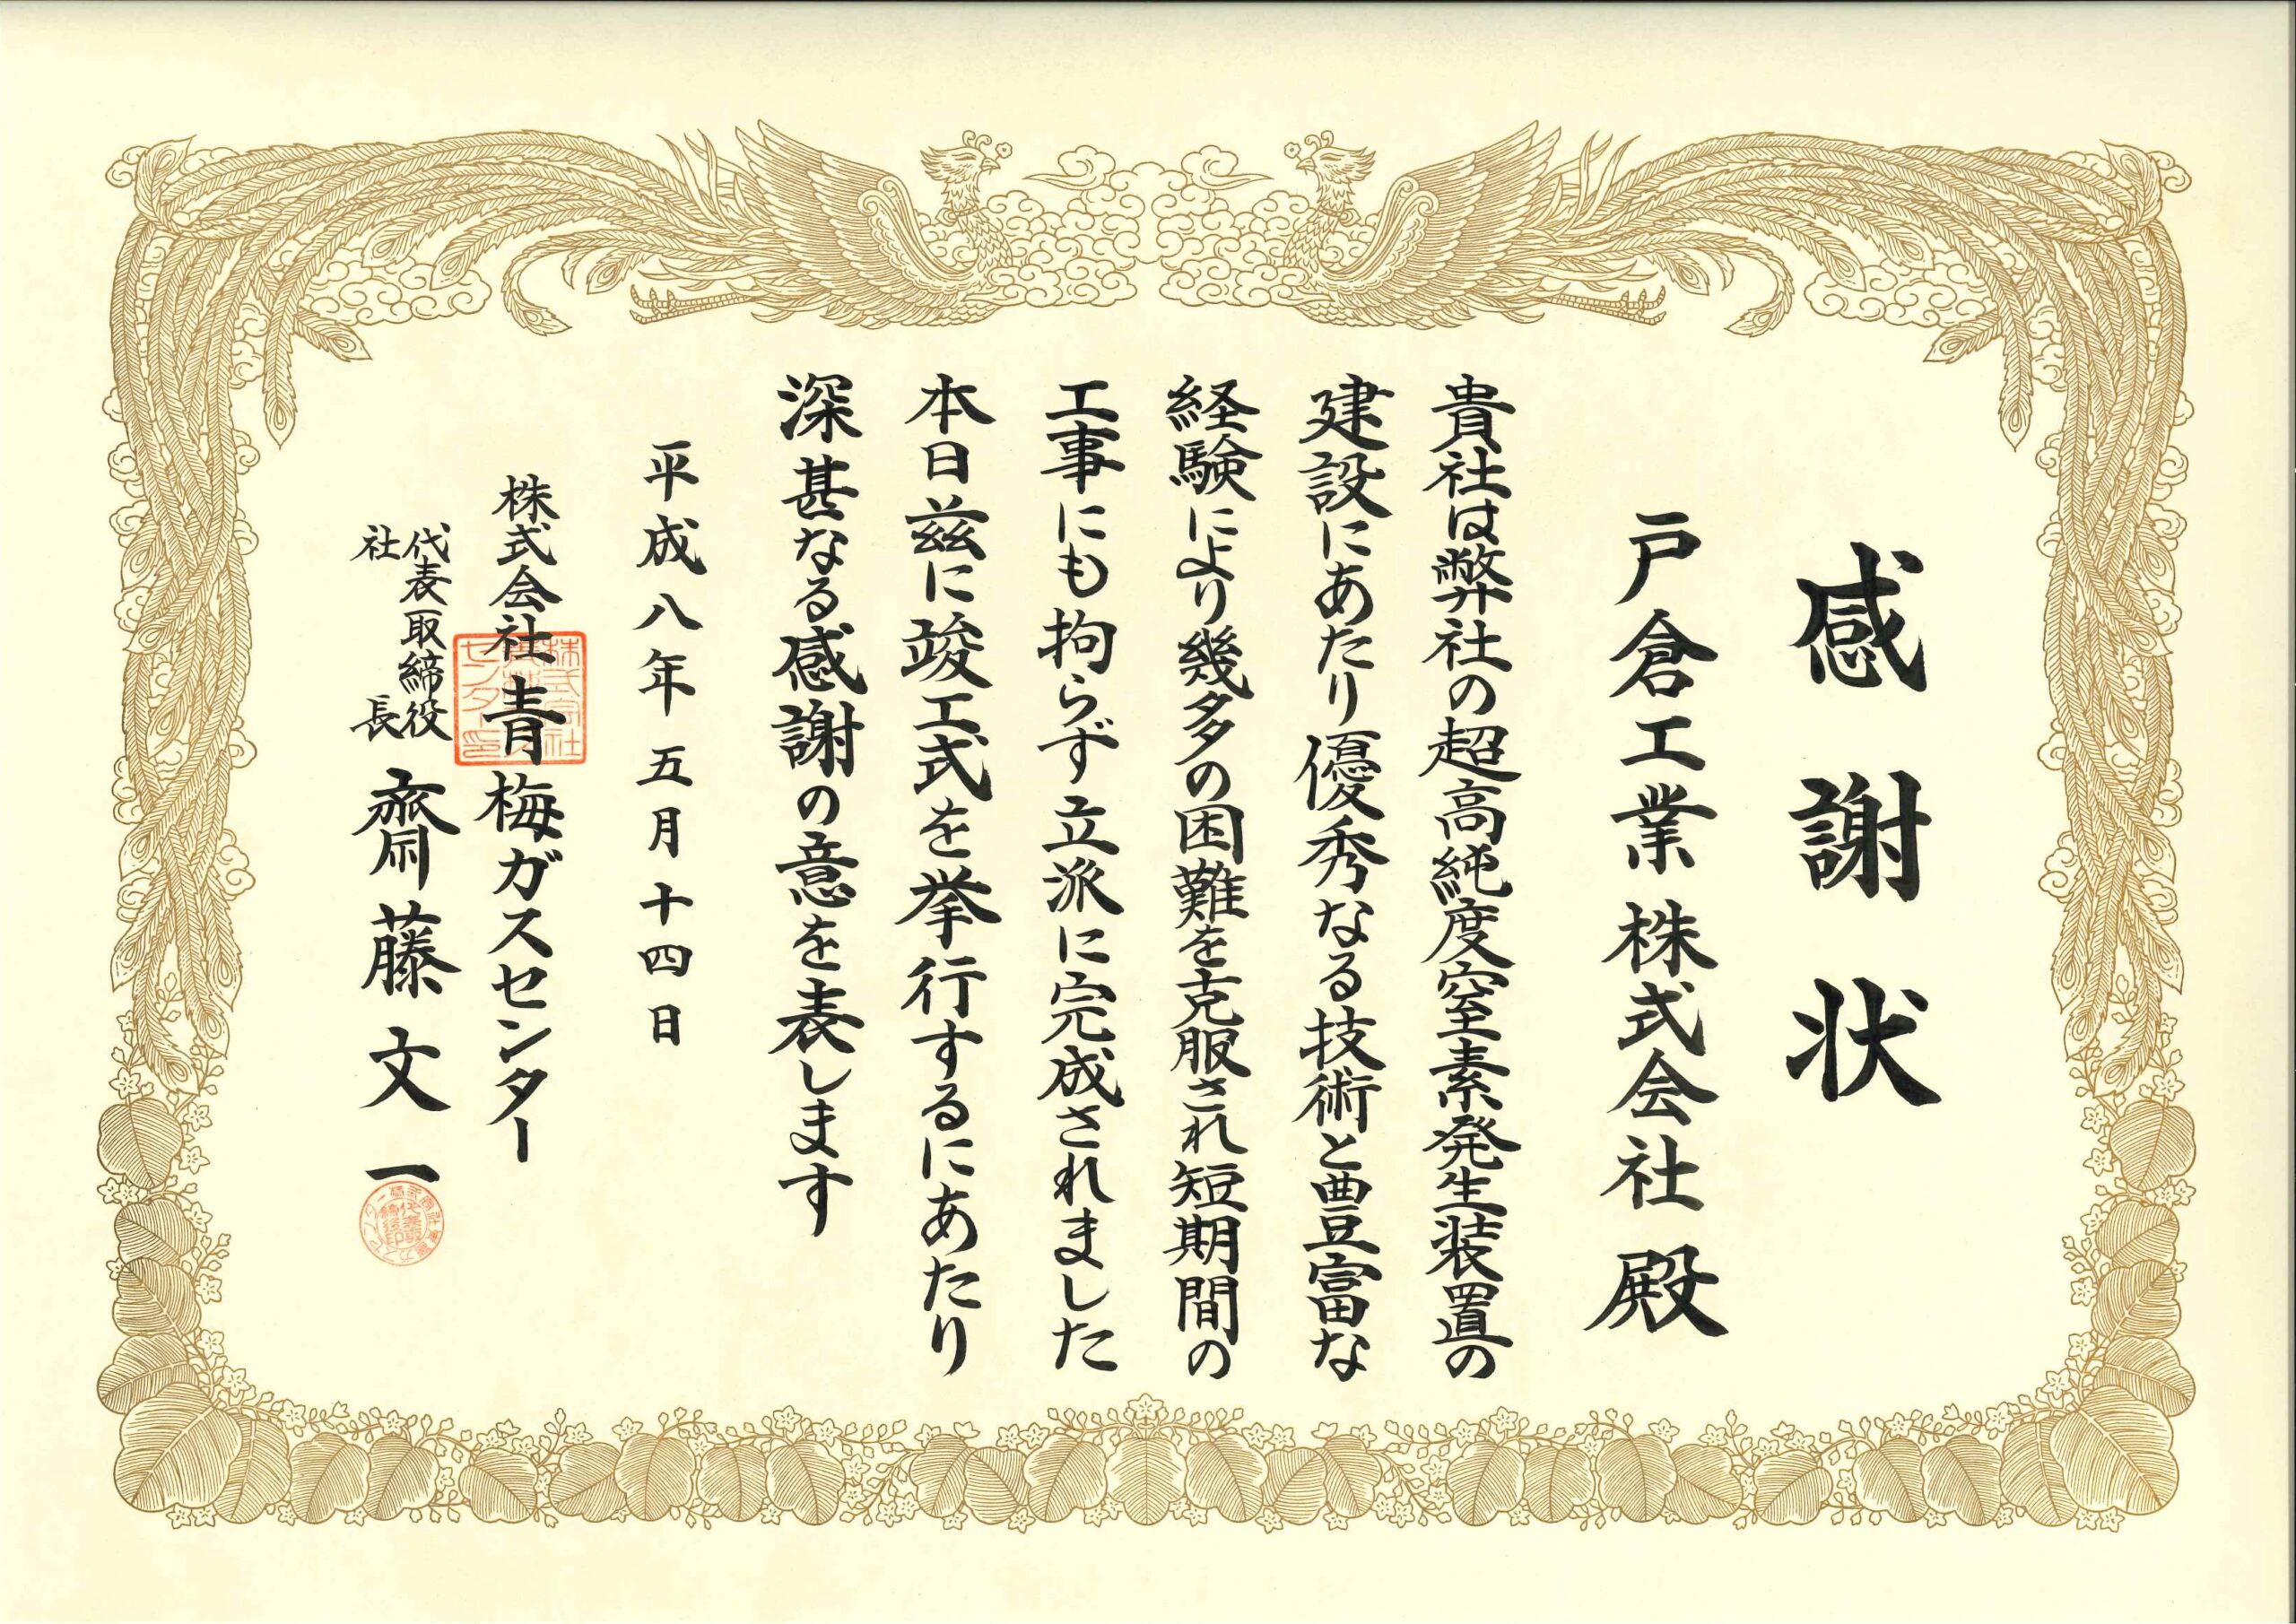 感謝状
戸倉工業株式会社 殿
貴社は弊社の超高純度窒素発生装置の
建設にあたり優秀なる技術と豊富な
経験により幾多の困難を克服され短期間の
工事にも拘らず立派に完成されました
本日茲に竣工式を挙行するにあたり
深甚なる感謝の意を表します
平成八年五月十四日
株式会社青梅ガスセンター
代表取締役
社長 齋藤文一